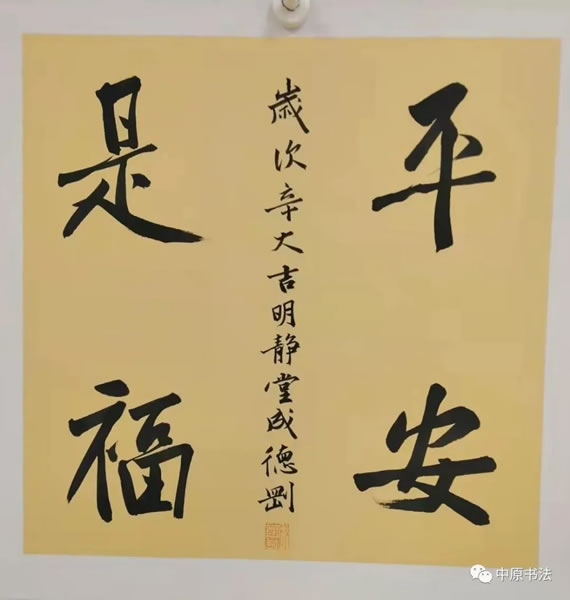 平安
是福
歲次辛大吉明静堂成德剛
中原书法